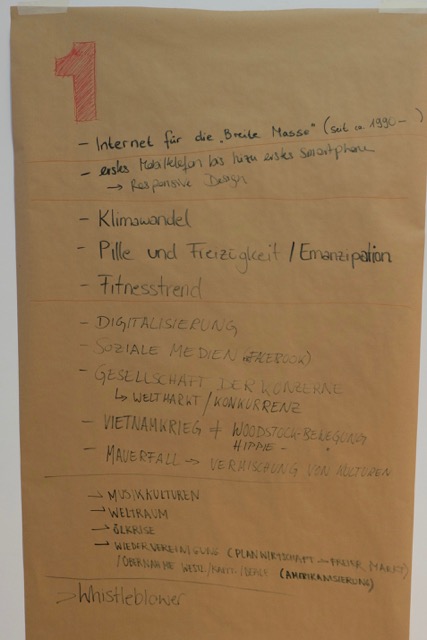 1
- Internet für die "Breite Masse" (seit ca 1990 -)
- erstes Mobiltelefon bis hin zu erstes Smartphone
→ Responsive Design
- Klimawandel
- Pille und Freizügkeit / Emanzipation
- Fitnesstrend
- DIGITALISIERUNG
- SOZIALE MEDIEN (FACEBOOK)
- GESELLSCHAFT DER KONZERNE
↳ WELTMARKT / KONKURRENZ
- VIETNAMKRIEG + WOODSTOCK-BEWEGUNG
HIPPIE - "
- MAUERFALL → VERMISCHUNG VON KULTUREN
→ MUSIKKULTUREN
→ WELTRAUM
→ ÖLKRISE
→ WIEDERVEREINIGUNG (PLANWIRTSCHAFT → FREIER MARKT)
/ÜBERNAHME WESTL. (AMERIKANISIERUNG)
> Whistleblower